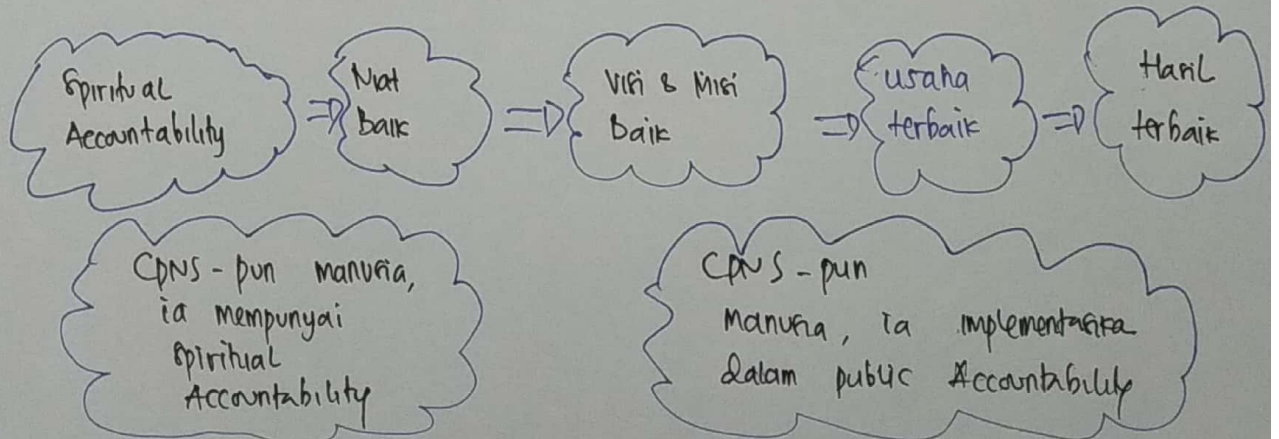 Spiritual
Accountability
Niat
baik
Visi & Misi
baik
usaha
terbaik
Hasil
terbaik
CPNS - pun manusia,
ia mempunyai
spiritual
Accountability
CPNS - pun
manusia, ia implementasika
dalam public Accountability